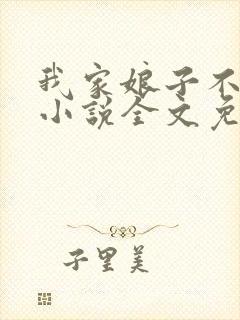 我家娘子不
小说全文免
子里美